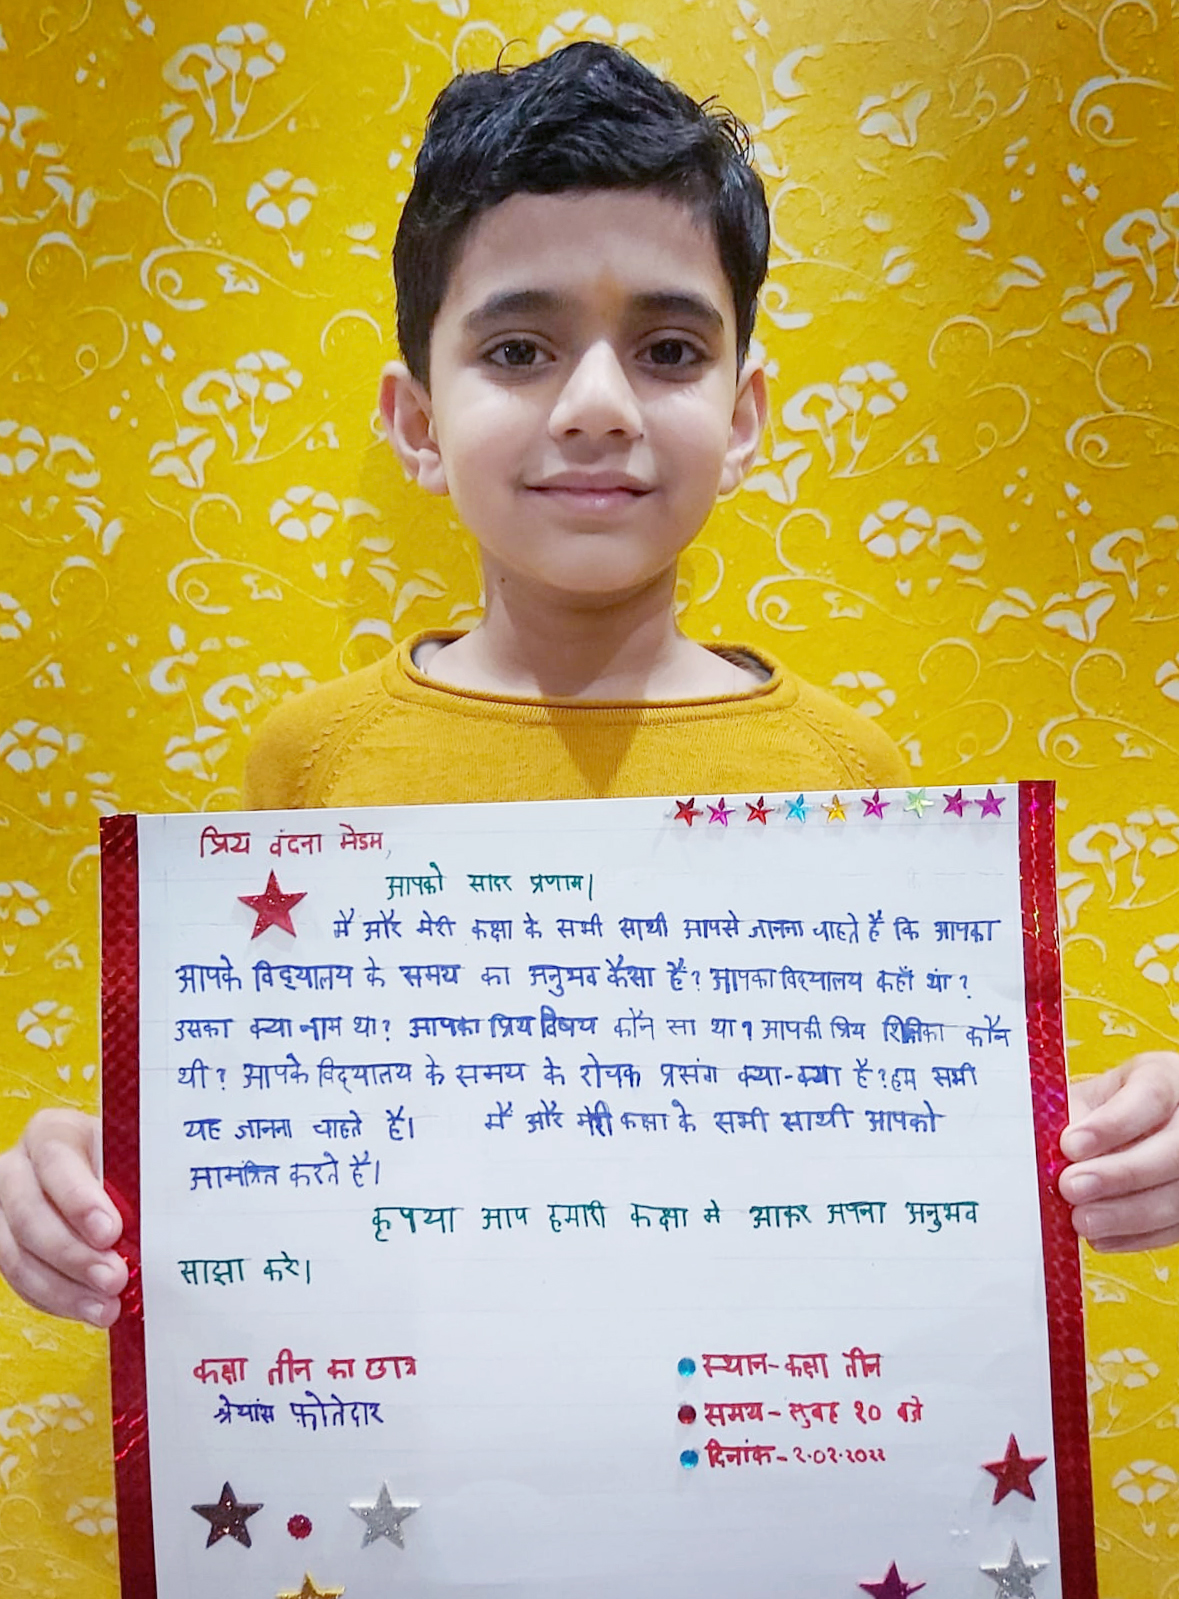 प्रिय वंदना मेडम,
आपको सादर प्रणाम।
मैं और मेरी कक्षा के सभी साथी आपसे जानना चाहते है कि आपका
आपके विद्यालय के समय का अनुभव कैसा है? आपका विद्यालय कहाँ था?
उसका क्या नाम था? आपका प्रिय विषय कौन सा था? आपकी प्रिय शिक्षिका कौन
थी? आपके विद्यालय के समय के रोचक प्रसंग क्या-क्या है? हम सभी
यह जानना चाहते है। मैं और मेरी कक्षा के सभी साथी आपको
आमंत्रित करते है।
कृपया आप हमारी कक्षा मे आकर अपना अनुभव
साझा करे।
कक्षा तीन का छात्र
श्रेयांस फ़ोतेदार
स्थान-कक्षा तीन
समय-सुबह १० बजे
दिनांक-२.०२.२०२२